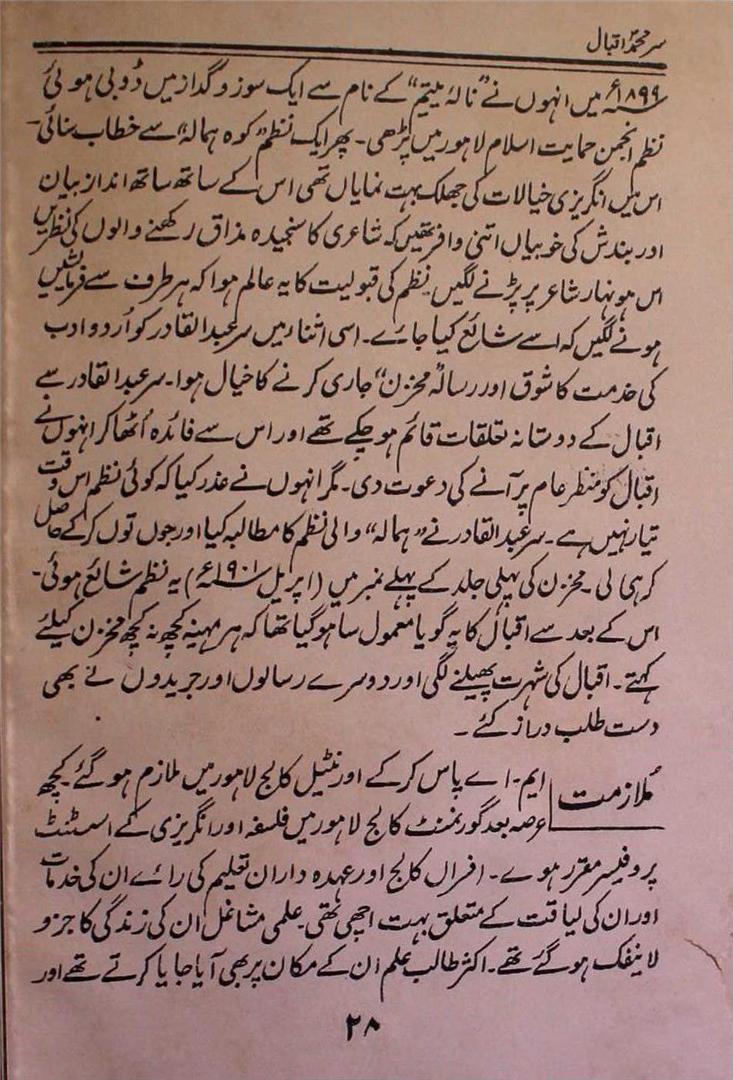 سر محمد اقبال
۱۸۹۹ء میں انہوں نے "نالۂ یتیم" کے نام سے ایک سوز و گداز میں ڈوبی ہوئی
نظم انجمن حمایت اسلام لاہور میں پڑھی۔ پھر ایک نظم "کوہ ہمالہ" سے خطاب سنائی۔
اس میں انگریزی خیالات کی جھلک بہت نمایاں تھی اس کے ساتھ ساتھ انداز بیان
اور بندش کی خوبیاں اتنی وافر تھیں کہ شاعری کا سنجیدہ مذاق رکھنے والوں کی نظریں
اس ہونہار شاعر پر پڑنے لگیں۔ نظم کی قبولیت کا یہ عالم ہوا کہ ہر طرف سے فرمائشیں
ہونے لگیں کہ اسے شائع کیا جائے۔ اسی اثنا میں سر عبدالقادر کو اُردو ادب
کی خدمت کا شوق اور رسالہ "مخزن" جاری کرنے کا خیال ہوا۔ سر عبدالقادر سے
اقبال کے دوستانہ تعلقات قائم ہو چکے تھے اور اس سے فائدہ اُٹھا کر انہوں نے
اقبال کو منظر عام پر آنے کی دعوت دی۔ مگر انہوں نے عذر کیا کہ کوئی نظم اس وقت
تیار نہیں ہے۔ سر عبدالقادر نے "ہمالہ" والی نظم کا مطالبہ کیا اور جوں توں کر کے حاصل
کر ہی لی۔ مخزن کی پہلی جلد کے پہلے نمبر میں (اپریل ۱۹۰۱ء) یہ نظم شائع ہوئی۔
اس کے بعد سے اقبال کا یہ گویا معمول سا ہو گیا تھا کہ ہر مہینہ کچھ نہ کچھ مخزن کیلئے
کہتے۔ اقبال کی شہرت پھیلنے لگی اور دوسرے رسالوں اور جریدوں نے بھی
دست طلب دراز کئے۔
مُلازمت ایم۔ اے پاس کر کے اورنٹیل کالج لاہور میں ملازم ہو گئے کچھ
عرصہ بعد گورنمنٹ کالج لاہور میں فلسفہ اور انگریزی کے اسسٹنٹ
پروفیسر مقرر ہوے۔ افسران کالج اور عہدہ داران تعلیم کی رائے ان کی خدمات
اور ان کی لیاقت کے متعلق بہت اچھی تھی۔ علمی مشاغل ان کی زندگی کا جزو
لاینفک ہو گئے تھے۔ اکثر طالب علم ان کے مکان پر بھی آیا جایا کرتے تھے اور
۲۸